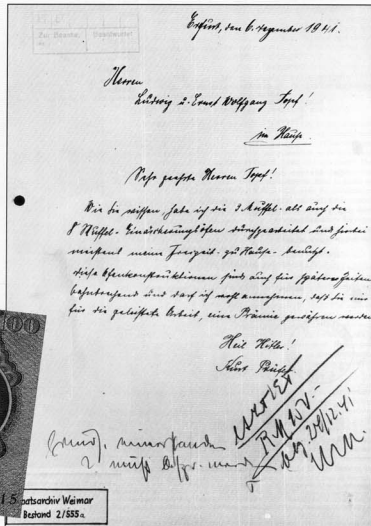 Erfurt, den 6. Dezember 1941.
Herren
Ludwig u. Ernst Wolfgang Topf!
im Hause.
Sehr geehrte Herren Topf!
Wie Sie wissen, habe ich die 3 Muffel- als auch die
8 Muffel-Einäscherungsöfen durchgearbeitet und hierbei
meistens meine Freizeit - zu Hause - benutzt.
Diese Ofenkonstruktionen sind auch für spätere Zeiten
bahnbrechend und darf ich wohl annehmen, daß Sie mir
für die geleistete Arbeit, eine Prämie gewähren werden
Heil Hitler!
Kurt Prüfer
RM 150.-
24/12.41
00
15
aatsarchiv Weimar
Bestand 2/555a